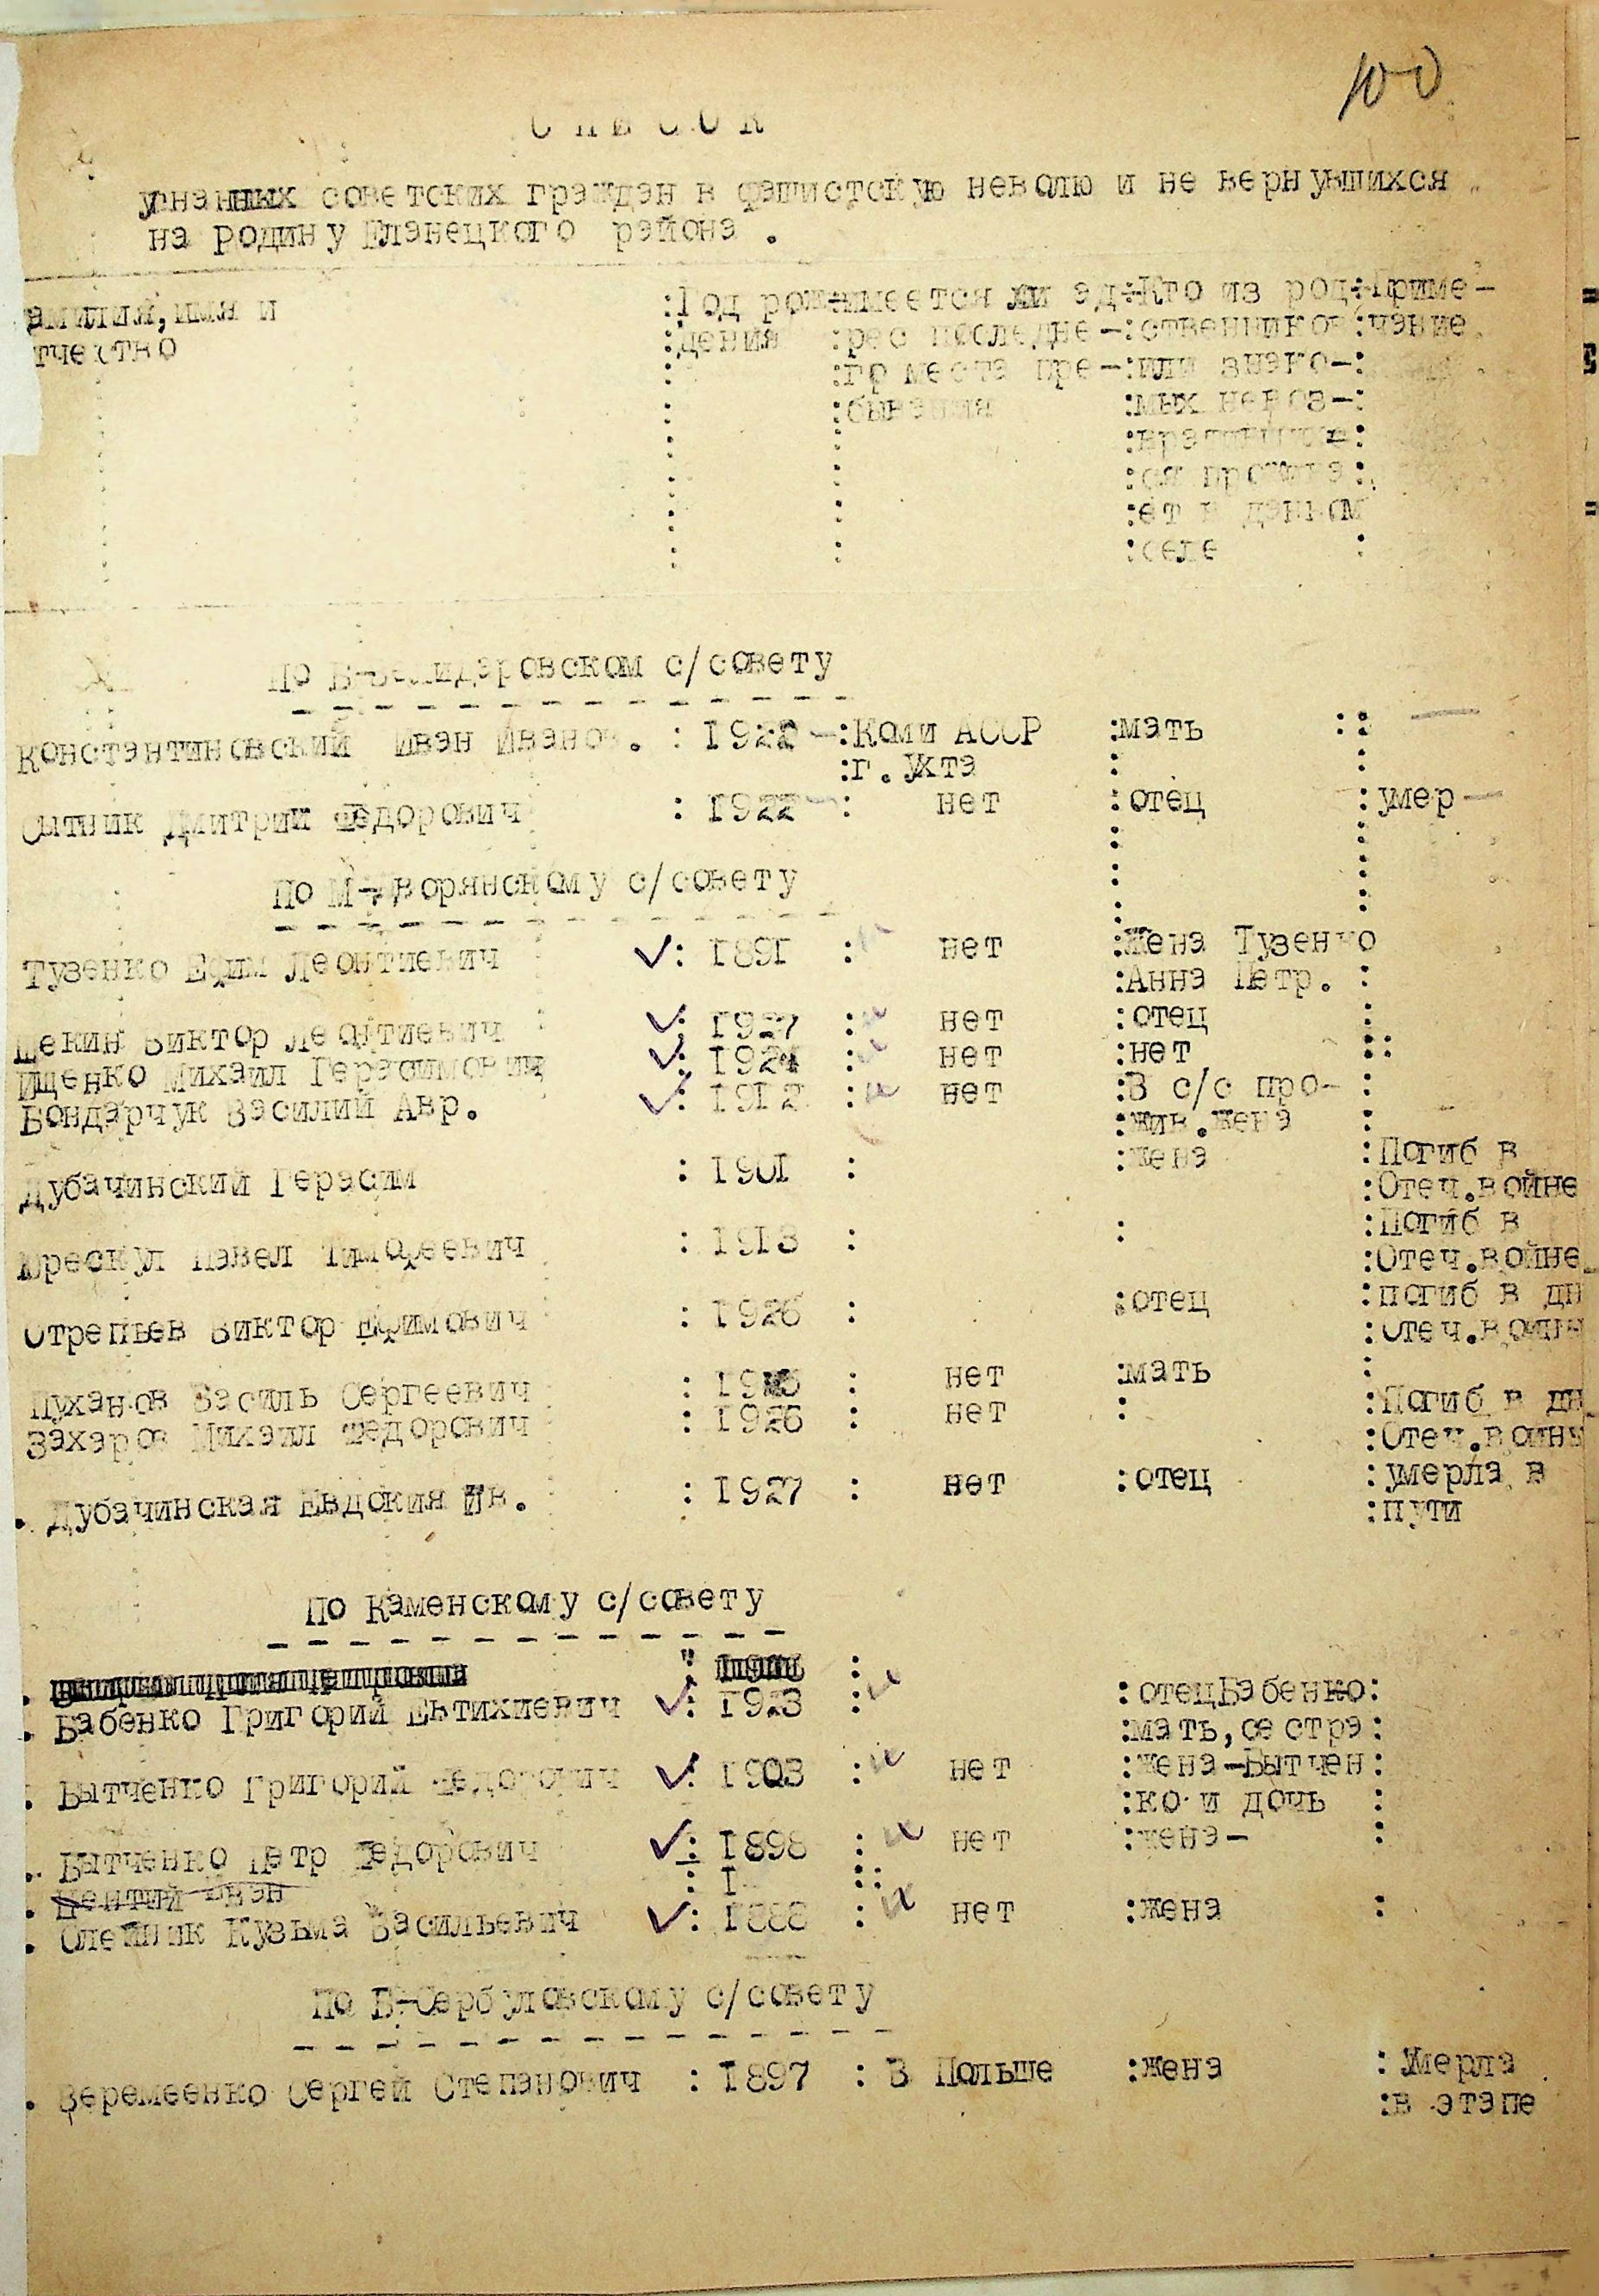 100
СПИСОК
угнанных советских граждан в фашистскую неволю и не вернувшихся
на Родину Еланецкого района .
амилия, имя и :Год рож-:имеется ли ад-:Кто из род-:Приме-
тчество :дения :рес последне-:ственников:чание
:го места пре-:или знако-:
:бывания :мых невоз-:
:вративши-:
:ся прожива:
:ет в данном
:селе :
По В-Солидаровском с/совету
Константиновский Иван Иванов. : 1922 -:Коми АССР :мать :
:г.Ухта
Сытник Дмитрий Федорович : 1922 : нет :отец :умер
По М-Дворянскому с/совету
Тузенко Ефим Леонтиевич : 1891 : нет :жена Тузенко
:Анна Петр. :
Цекин Виктор Леонтиевич : 1927 : нет :отец
Ищенко Михаил Герасимович : 1924 : нет :нет
Бондарчук Василий Авр. : 1912 : нет :В с/с про-
:жив.жена
Дубачинский Герасим : 1901 : :жена :Погиб в
:Отеч.войне
Юрескул Павел Тимофеевич : 1913 : : :Погиб в
:Отеч.войне
Отрепьев Виктор Ефимович : 1926 : :отец :погиб в дн
:Отеч.войны
Луханов Василь Сергеевич : : нет :мать
Захаров Михаил Федорович : 1926 : нет : :Погиб в дн
:Отеч.войны
. Дубачинская Евдокия Ив. : 1927 : нет :отец :умерла в
:пути
По Каменскому с/совету
. Бабенко Григорий Евтихиевич : 1923 : :отецБабенко:
:мать,сестра:
. Бытченко Григорий Федорович : 1903 : нет :жена-Бытчен:
:ко и дочь :
. Бытченко Петр Федорович : 1898 : нет :жена- :
. Иван : 1
. Олейник Кузьма Васильевич : 1888 : нет :жена :
По В-Сербуловскому с/совету
. Веремеенко Сергей Степанович : 1897 : В Польше :жена : Умерла
:в этапе